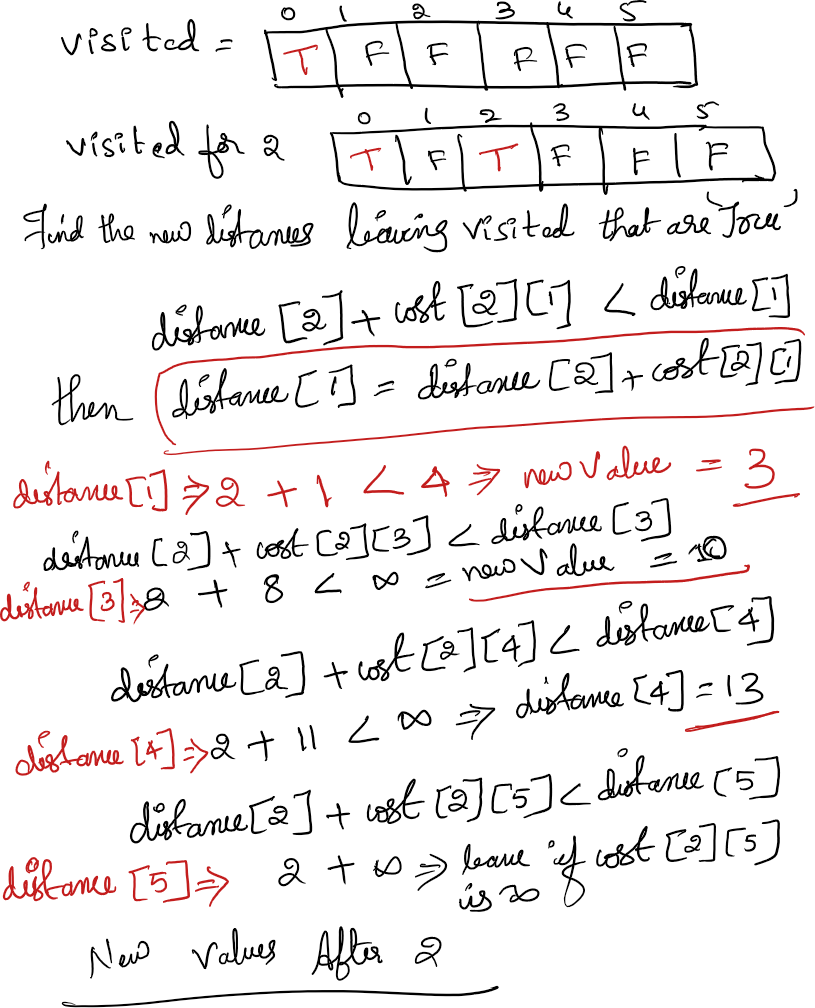 0 1 2 3 4 5
visited = T F F F F F
0 1 2 3 4 5
visited for 2 T F T F F F
Find the new distances leaving visited that are 'True'
distance [2] + cost [2][1] < distance [1]
then distance [1] = distance [2] + cost [2][1]
distance [1] ⇒ 2 + 1 < 4 ⇒ new value = 3
distance [2] + cost [2][3] < distance [3]
distance [3] ⇒ 2 + 8 < ∞ = new value = 10
distance [2] + cost [2][4] < distance [4]
distance [4] ⇒ 2 + 11 < ∞ ⇒ distance [4] = 13
distance [2] + cost [2][5] < distance [5]
distance [5] ⇒ 2 + ∞ ⇒ leave if cost [2][5]
is ∞
New values After 2